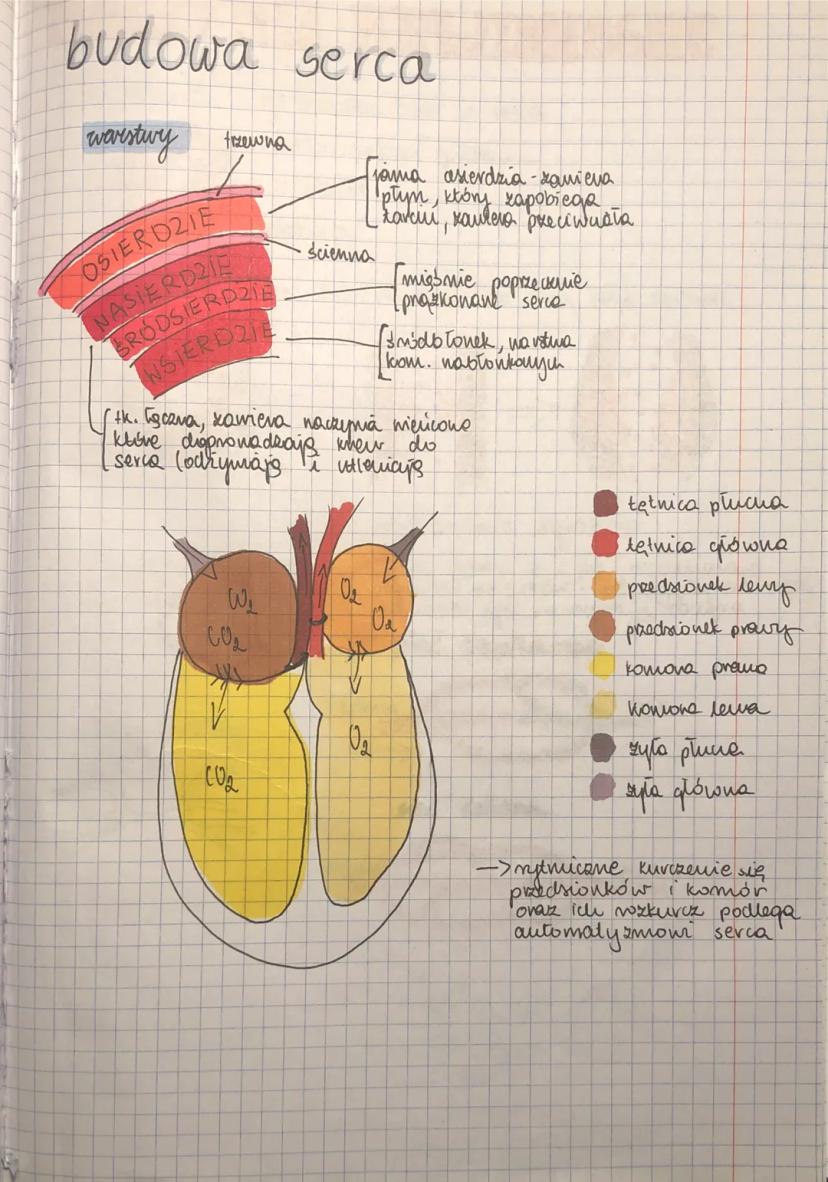 budowa serca
warstwy
trzewna
jama osierdzia - zawiera
płyn, który zapobiega
tarciu, zawiera przeciwciała
OSIERDZIE
ścienna
NASIERDZIE
mięśnie poprzecznie
prążkowane serca
ŚRÓDSIERDZIE
śródbłonek, warstwa
kom. nabłonkowych
WSIERDZIE
tk. łączna, zawiera naczynia wieńcowe
które doprowadzają krew do
serca (odżywiają i utleniają
tętnica płucna
tętnica główna
przedsionek lewy
przedsionek prawy
komora prawa
komora lewa
żyła płucna
żyła główna
CO₂
CO₂
O₂
O₂
CO₂
O₂
—> rytmiczne kurczenie się
przedsionków i komór
oraz ich rozkurcz podlega
automatyzmowi serca